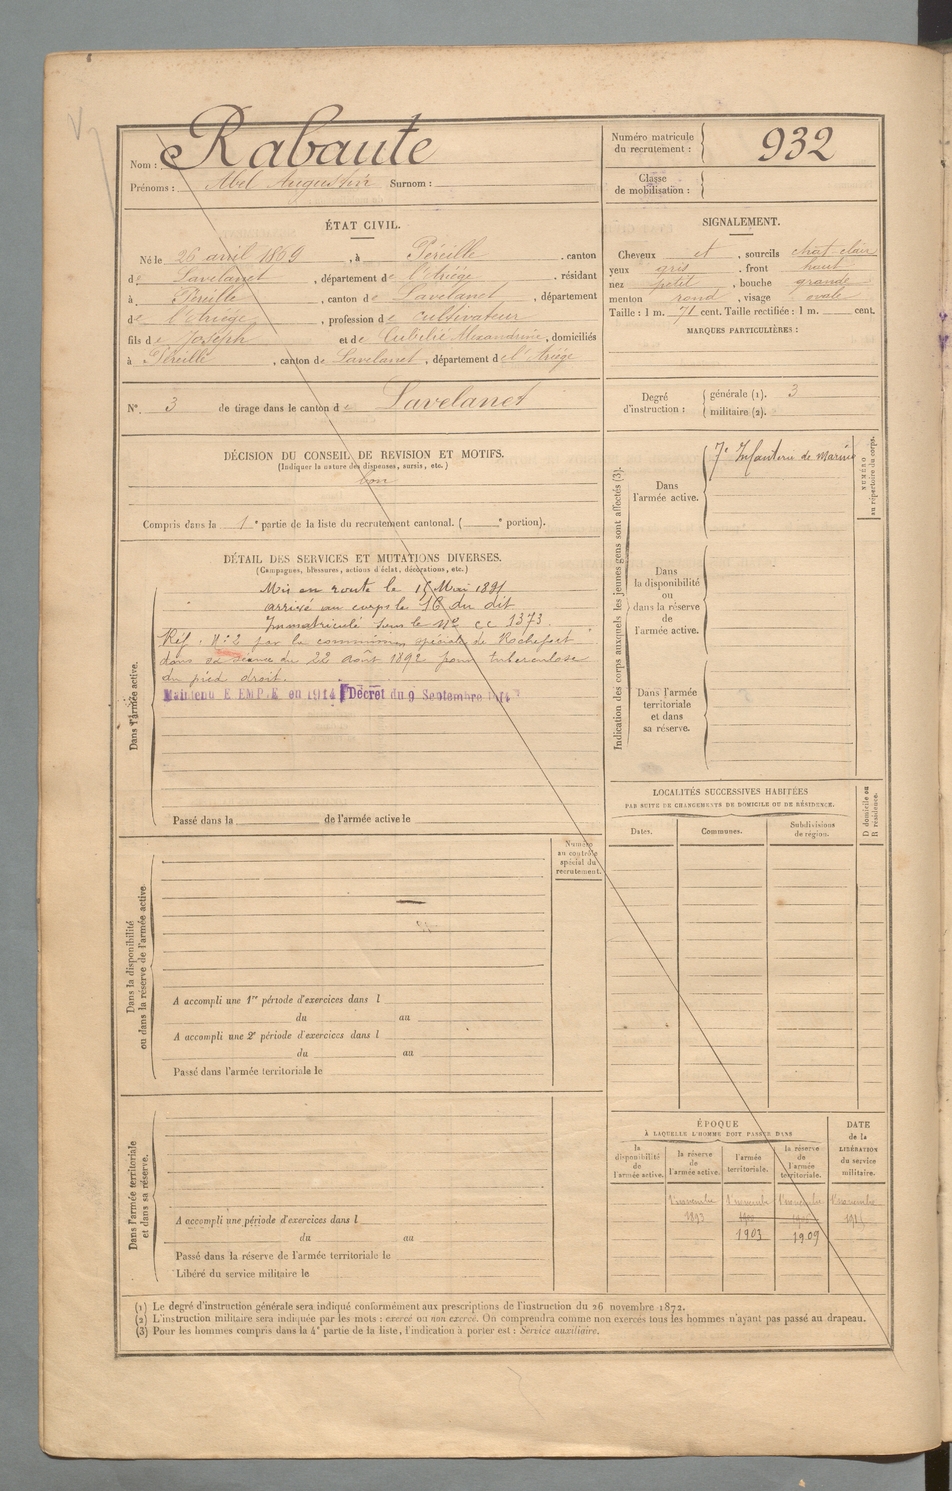 Nom : Rabaute
Prénoms : Abel Augustin Surnom :
Numéro matricule du recrutement : 932
Classe de mobilisation :
ÉTAT CIVIL.
Né le 26 avril 1869, à Péreille, canton
de Lavelanet, département de l'Ariège, résidant
à Péreille, canton de Lavelanet, département
de l'Ariège, profession de cultivateur
fils de Joseph et de Alexandrine, domiciliés
à Péreille, canton de Lavelanet, département de l'Ariège
N° 3 de tirage dans le canton de Lavelanet
SIGNALEMENT.
Cheveux et, sourcils chat clair
yeux gris, front haut
nez petit, bouche grande
menton rond, visage ovale
Taille : 1 m. 71 cent. Taille rectifiée : 1 m. cent.
MARQUES PARTICULIÈRES :
Degré d'instruction : générale (1). 3
militaire (2).
DÉCISION DU CONSEIL DE REVISION ET MOTIFS.
(Indiquer la nature des dispenses, sursis, etc.)
bon
Compris dans la 1e partie de la liste du recrutement cantonal. ( e portion).
DÉTAIL DES SERVICES ET MUTATIONS DIVERSES.
(Campagnes, blessures, actions d'éclat, décorations, etc.)
Dans l'armée active.
Mis en route le Mai 1891
arrivé au corps le 16 du dit
Immatriculé sous le N° cc 1373.
Réf. N° 2 par la commission spéciale de Rochefort
dans sa séance du 22 août 1892 pour tuberculose
du pied droit.
Maintenu E EMP.E en 1914 Décret du 9 Septembre 1914
Passé dans la de l'armée active le
Indication des corps auxquels les jeunes gens sont affectés (3).
NUMÉRO au répertoire du corps.
Dans l'armée active. 7e Infanterie de marine
Dans la disponibilité ou dans la réserve de l'armée active.
Dans l'armée territoriale et dans sa réserve.
LOCALITÉS SUCCESSIVES HABITÉES
PAR SUITE DE CHANGEMENTS DE DOMICILE OU DE RÉSIDENCE.
D domicile ou R résidence.
Dates. Communes. Subdivisions de région.
Dans la disponibilité ou dans la réserve de l'armée active.
Numéro au contrôle spécial du recrutement.
A accompli une 1re période d'exercices dans l
du au
A accompli une 2e période d'exercices dans l
du au
Passé dans l'armée territoriale le
Dans l'armée territoriale et dans sa réserve.
A accompli une période d'exercices dans l
du au
Passé dans la réserve de l'armée territoriale le
Libéré du service militaire le
ÉPOQUE
À LAQUELLE L'HOMME DOIT PASSER DANS
DATE de la LIBÉRATION du service militaire.
la disponibilité de l'armée active.
la réserve de l'armée active.
l'armée territoriale.
la réserve de l'armée territoriale.
1 novembre 1 novembre 1 novembre 1 novembre
1893
1903 1909
(1) Le degré d'instruction générale sera indiqué conformément aux prescriptions de l'instruction du 26 novembre 1872.
(2) L'instruction militaire sera indiquée par les mots : exercé ou non exercé. On comprendra comme non exercés tous les hommes n'ayant pas passé au drapeau.
(3) Pour les hommes compris dans la 4e partie de la liste, l'indication à porter est : Service auxiliaire.